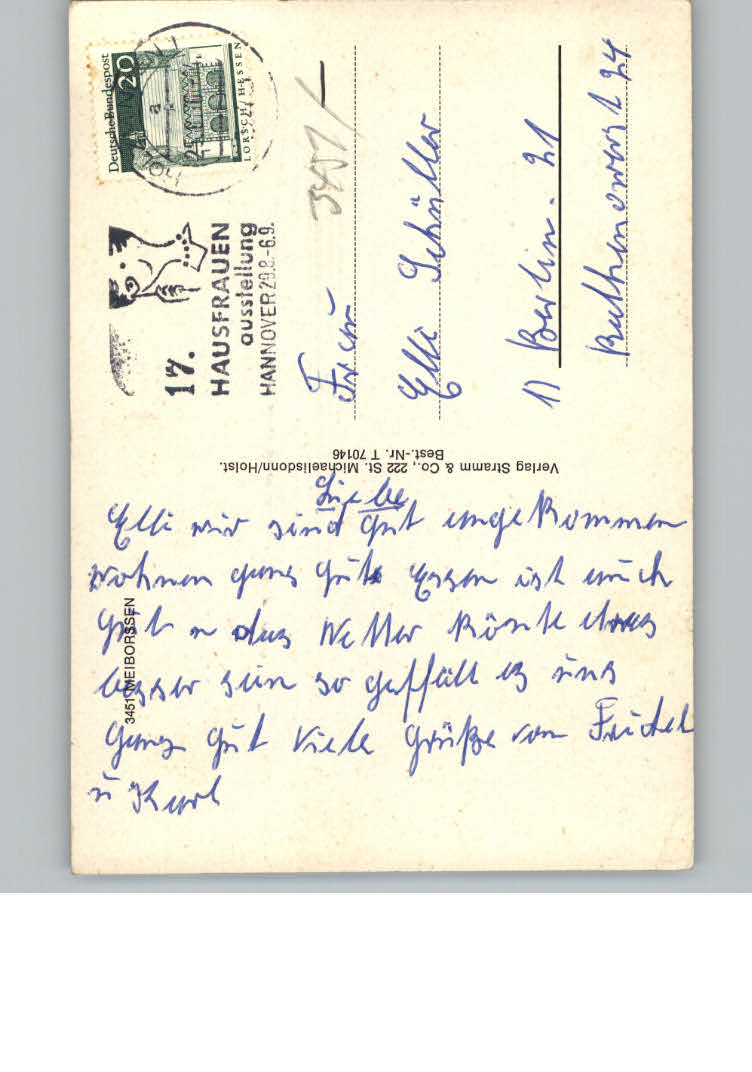 Deutsche Bundespost
20
LORSCH / HESSEN
17.
HAUSFRAUEN
ausstellung
HANNOVER 29.8.-6.9.
3457/-
Frau
Elli Schüller
1) Berlin. 21
Rathenowerst 24
Verlag Stramm & Co., 222 St. Michaelisdonn/Holst.
Best.-Nr. T 70146
3451 MEIBORSSEN
Liebe
Elli wir sind gut angekommen
wohnen ganz gut Essen ist auch
gut u das Wetter könte etwas
besser sein so geffält es uns
ganz gut Viele Grüße von Friedel
u Kurt